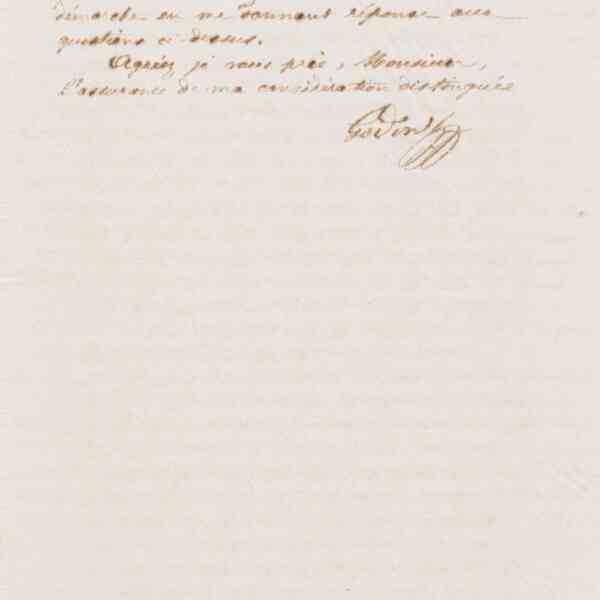 démarche en me donnant réponse aux
questions ci dessus.
Agréez, je vous prie, Monsieur,
l'assurance de ma considération distinguée
Godin